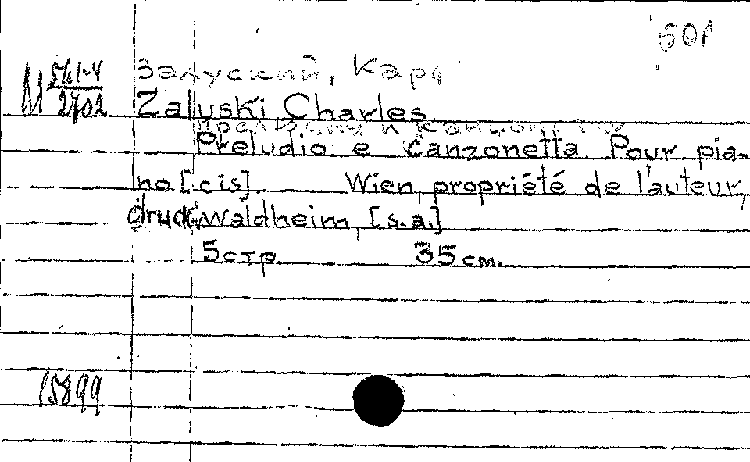 501
М 576 I-V
2702
Залуский, Карл
Zaluski Charles
Прелюдия и канцонетта
Preludio e canzonetta. Pour pia-
no [cis]. Wien, propriété de l'auteur,
druck Waldheim, [s.a.]
5 стр. 35 см.
15899